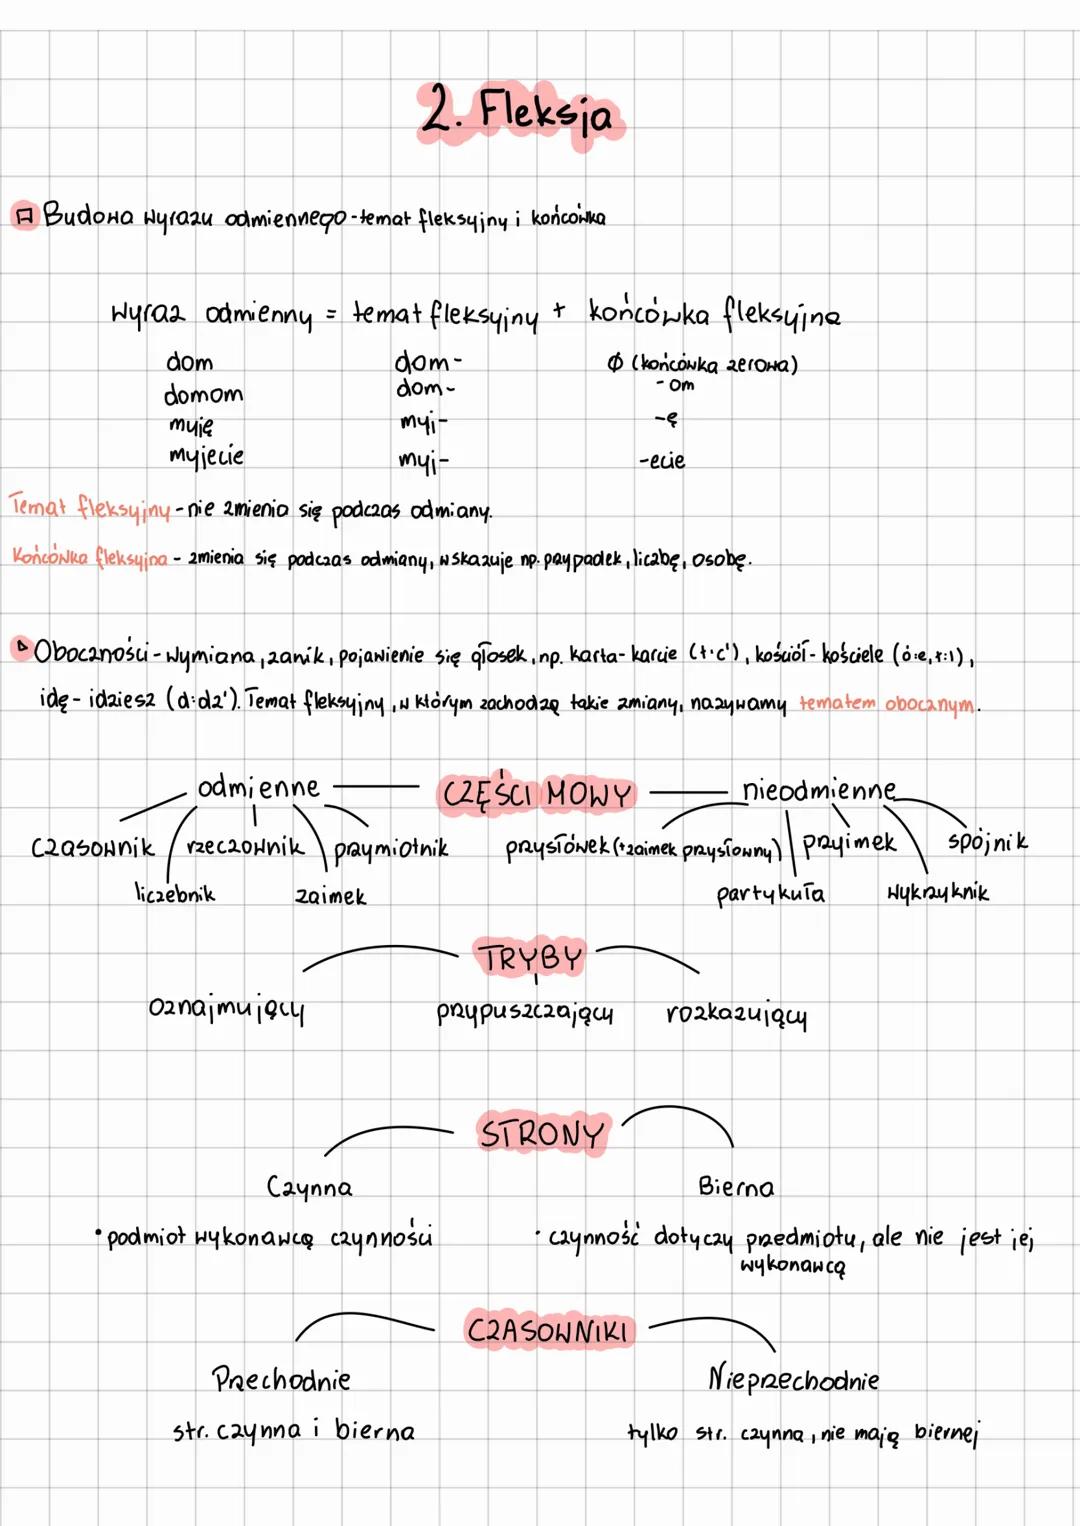 2. Fleksja
Budowa wyrazu odmiennego - temat fleksyjny i końcówka
wyraz odmienny = temat fleksyjny + końcówka fleksyjna
dom dom- Ø (końcówka zerowa)
domom dom- -om
myję myj- -ę
myjecie myj- -ecie
Temat fleksyjny - nie zmienia się podczas odmiany.
Końcówka fleksyjna - zmienia się podczas odmiany, wskazuje np. przypadek, liczbę, osobę.
Oboczności - wymiana, zanik, pojawienie się głosek, np. karta - karcie (t:c'), kościół - kościele (ó:e, ł:l),
idę - idziesz (d:dz'). Temat fleksyjny, w którym zachodzą takie zmiany, nazywamy tematem obocznym.
odmienne CZĘŚCI MOWY nieodmienne
czasownik rzeczownik przymiotnik przysłówek (+zaimek przysłowny) przyimek spójnik
liczebnik zaimek partykuła wykrzyknik
TRYBY
oznajmujący przypuszczający rozkazujący
STRONY
Czynna Bierna
• podmiot wykonawcą czynności • czynność dotyczy przedmiotu, ale nie jest jej
wykonawcą
CZASOWNIKI
Przechodnie Nieprzechodnie
str. czynna i bierna tylko str. czynna, nie mają biernej